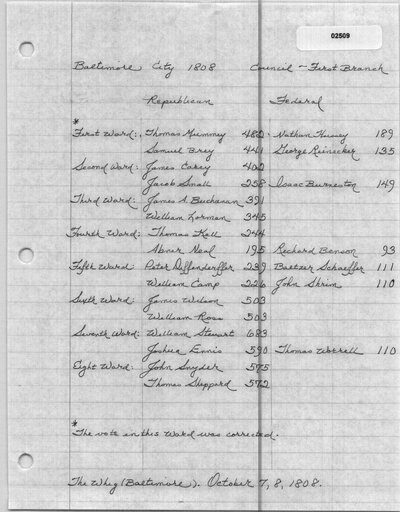 02509
Baltimore City 1808 Council - First Branch
Republican Federal
*
First Ward: Thomas Mummey 482 Nathan Hussey 189
Samuel Brey 441 George Reinecker 135
Second Ward: James Carey 402
Jacob Small 258 Isaac Burneston 149
Third Ward: James A. Buchanan 391
William Lorman 345
Fourth Ward: Thomas Kell 244
Abner Neal 195 Richard Benson 93
Fifth Ward: Peter Diffenderffer 239 Baltzer Schaeffer 111
William Camp 226 John Shrim 110
Sixth Ward: James Wilson 503
William Ross 503
Seventh Ward: William Stewart 683
Joshua Ennis 590 Thomas Worrell 110
Eight Ward: John Snyder 575
Thomas Sheppard 572
*
The vote in this Ward was corrected.
The Whig (Baltimore). October 7, 8, 1808.